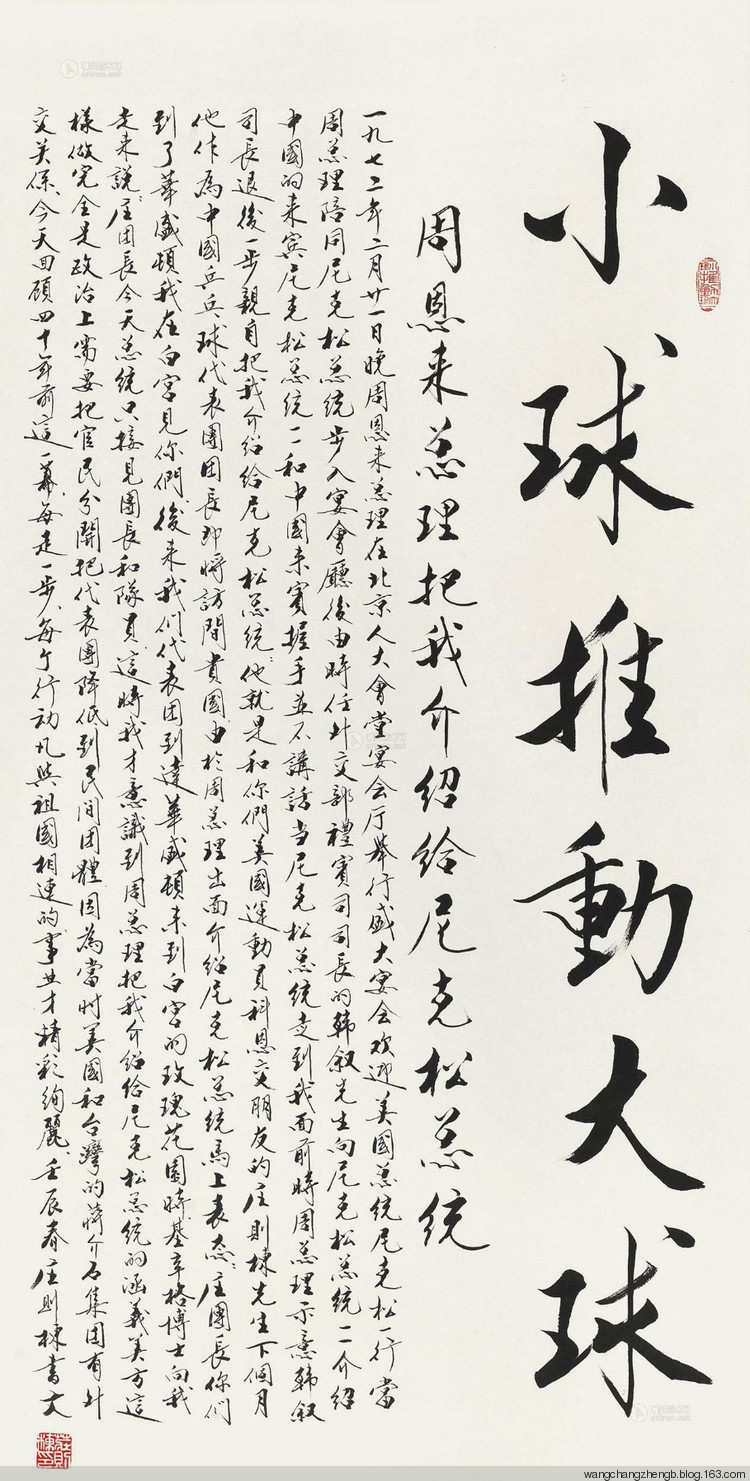 小球推動大球
周恩来总理把我介绍给尼克松总统
一九七二年二月廿一日晚周恩来总理在北京人大會堂宴会厅举行盛大宴会欢迎美国总统尼克松一行當
周总理陪同尼克松总统步入宴會廳後由時任外交部禮賓司司長的韩叙先生向尼克松总统一一介绍
中國的来宾尼克松总统一一和中國来賓握手並不講話当尼克松总统走到我面前時周总理示意韩叙
司長退後一步親自把我介绍给尼克松总统：他就是和你們美國運動員科恩交朋友的庄则棟先生下個月
他作為中國乒乓球代表團团長即將訪問貴國由於周总理出面介绍尼克松总统馬上表态：庄團長你們
到了華盛頓我在白宫見你們後来我们代表团到達華盛頓来到白宫的玫瑰花園時基辛格博士向我
走来說：庄团長今天总统只接見團長和隊員這時我才意識到周总理把我介绍给尼克松总统的涵義美方這
樣做完全是政治上需要把官民分開把代表團降低到民间团體因為當时美國和台灣的蒋介石集团有外
交关係今天回顾四十年前這一幕每走一步每个行动凡與祖國相連的事业才精彩绚麗壬辰春庄则棟書文
wangchangzhengb.blog.163.com